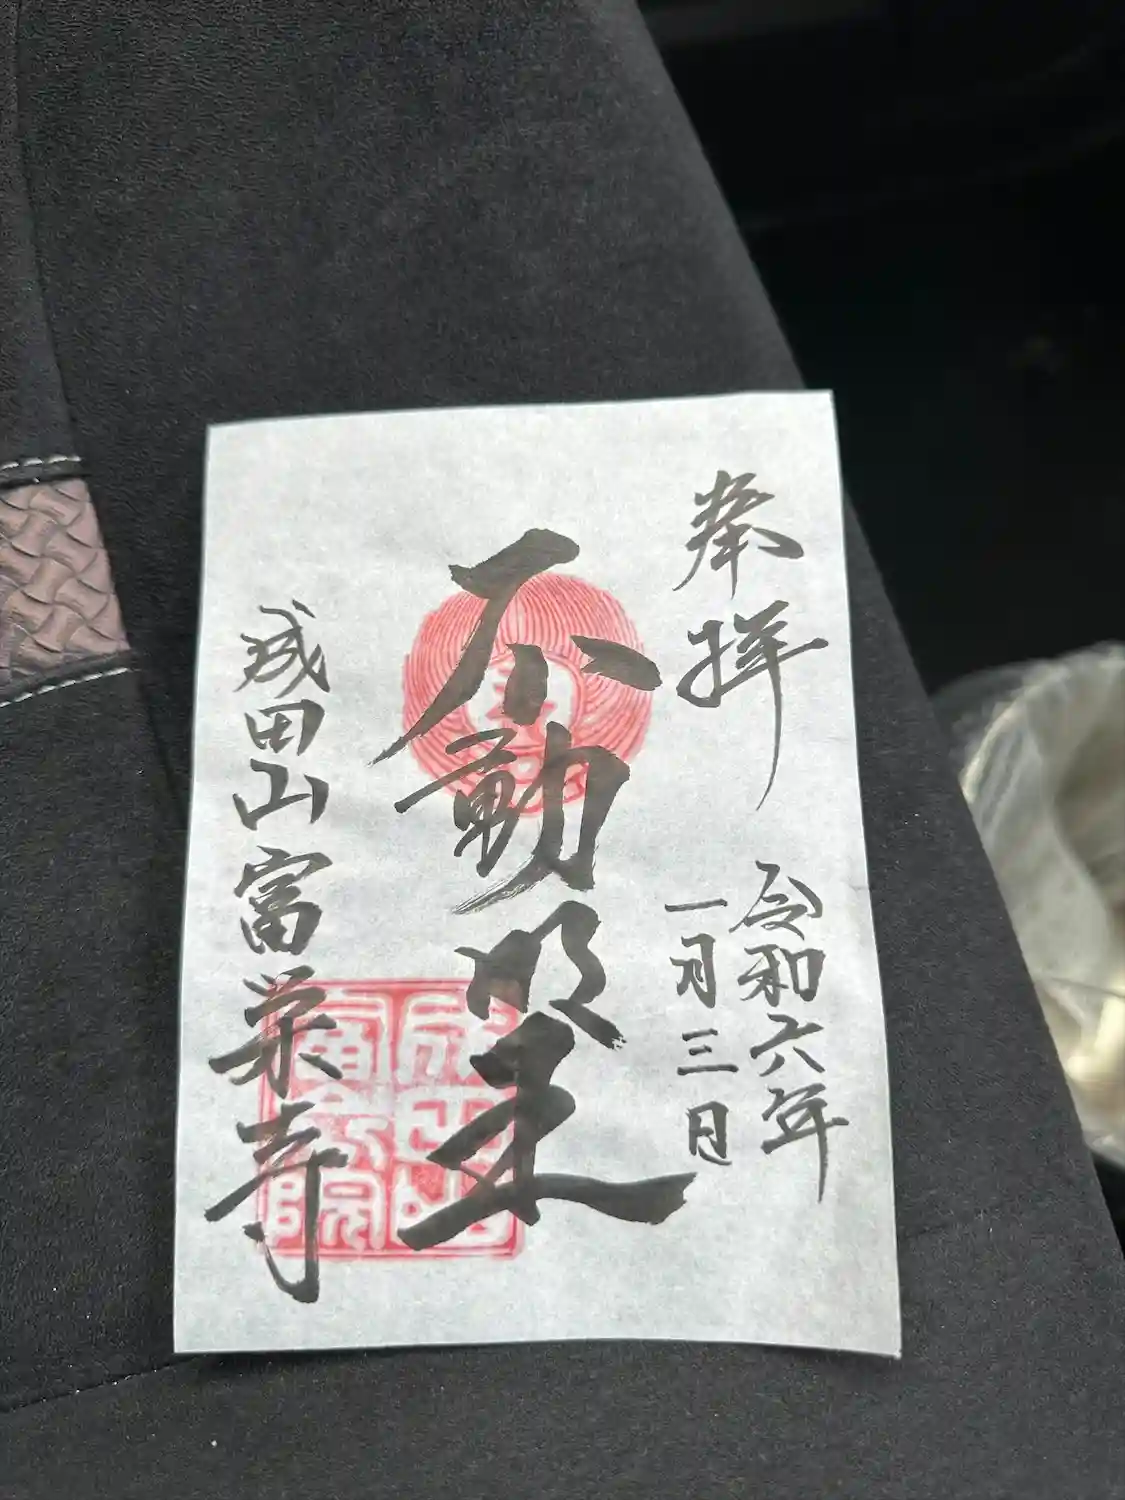 奉拝
令和六年
一月三日
不動明王
成田山富栄寺